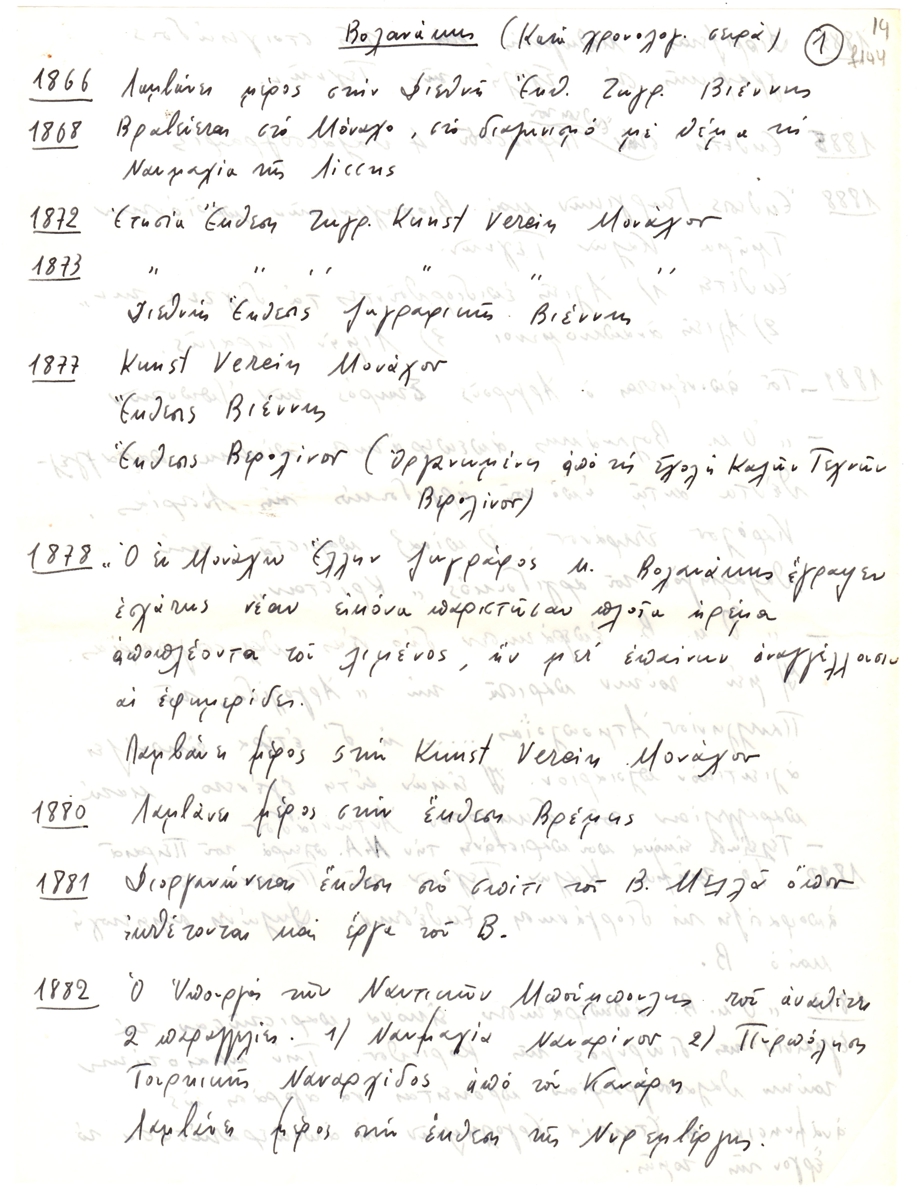 Βολανάκης (Κατά χρονολογ. σειρά) 1
14
1866 Λαμβάνει μέρος στήν Διεθνή Ἔκθ. Ζωγρ. Βιέννης
1868 Βραβεύεται στό Μόναχο, στό διαγωνισμό μέ θέμα τή
Ναυμαχία τῆς Λίσσης
1872 Ἐτησία Ἔκθεση Ζωγρ. Kunst Verein Μονάχου
1873 " " " " " "
Διεθνής Ἔκθεσις Ζωγραφικῆς Βιέννης
1877 Kunst Verein Μονάχου
Ἔκθεσις Βιέννης
Ἔκθεσις Βερολίνου (Ὀργανωμένη ἀπό τή Σχολή Καλῶν Τεχνῶν
Βερολίνου)
1878 "Ὁ ἐν Μονάχῳ Ἕλλην ζωγράφος κ. Βολανάκης ἔγραψεν
ἐσχάτως νέαν εἰκόνα παριστῶσαν πλοῖα ἠρέμα
ἀποπλέοντα τοῦ λιμένος, ἥν μετ' ἐπαίνων ἀναγγέλλουσιν
αἱ ἐφημερίδες.
Λαμβάνει μέρος στήν Kunst Verein Μονάχου
1880 Λαμβάνει μέρος στήν ἔκθεση Βρέμης
1881 Διοργανώνεται ἔκθεση στό σπίτι τοῦ Β. Μελλᾶ ὅπου
ἐκθέτονται καί ἔργα τοῦ Β.
1882 Ὁ Ὑπουργός τῶν Ναυτικῶν Μπούμπουλης τοῦ ἀναθέτει
2 παραγγελίες. 1) Ναυμαχία Ναυαρίνου 2) Πυρπόληση
Τουρκικῆς Ναυαρχίδος ἀπό τόν Κανάρη
Λαμβάνει μέρος στήν ἔκθεση τῆς Νυρεμβέργης.